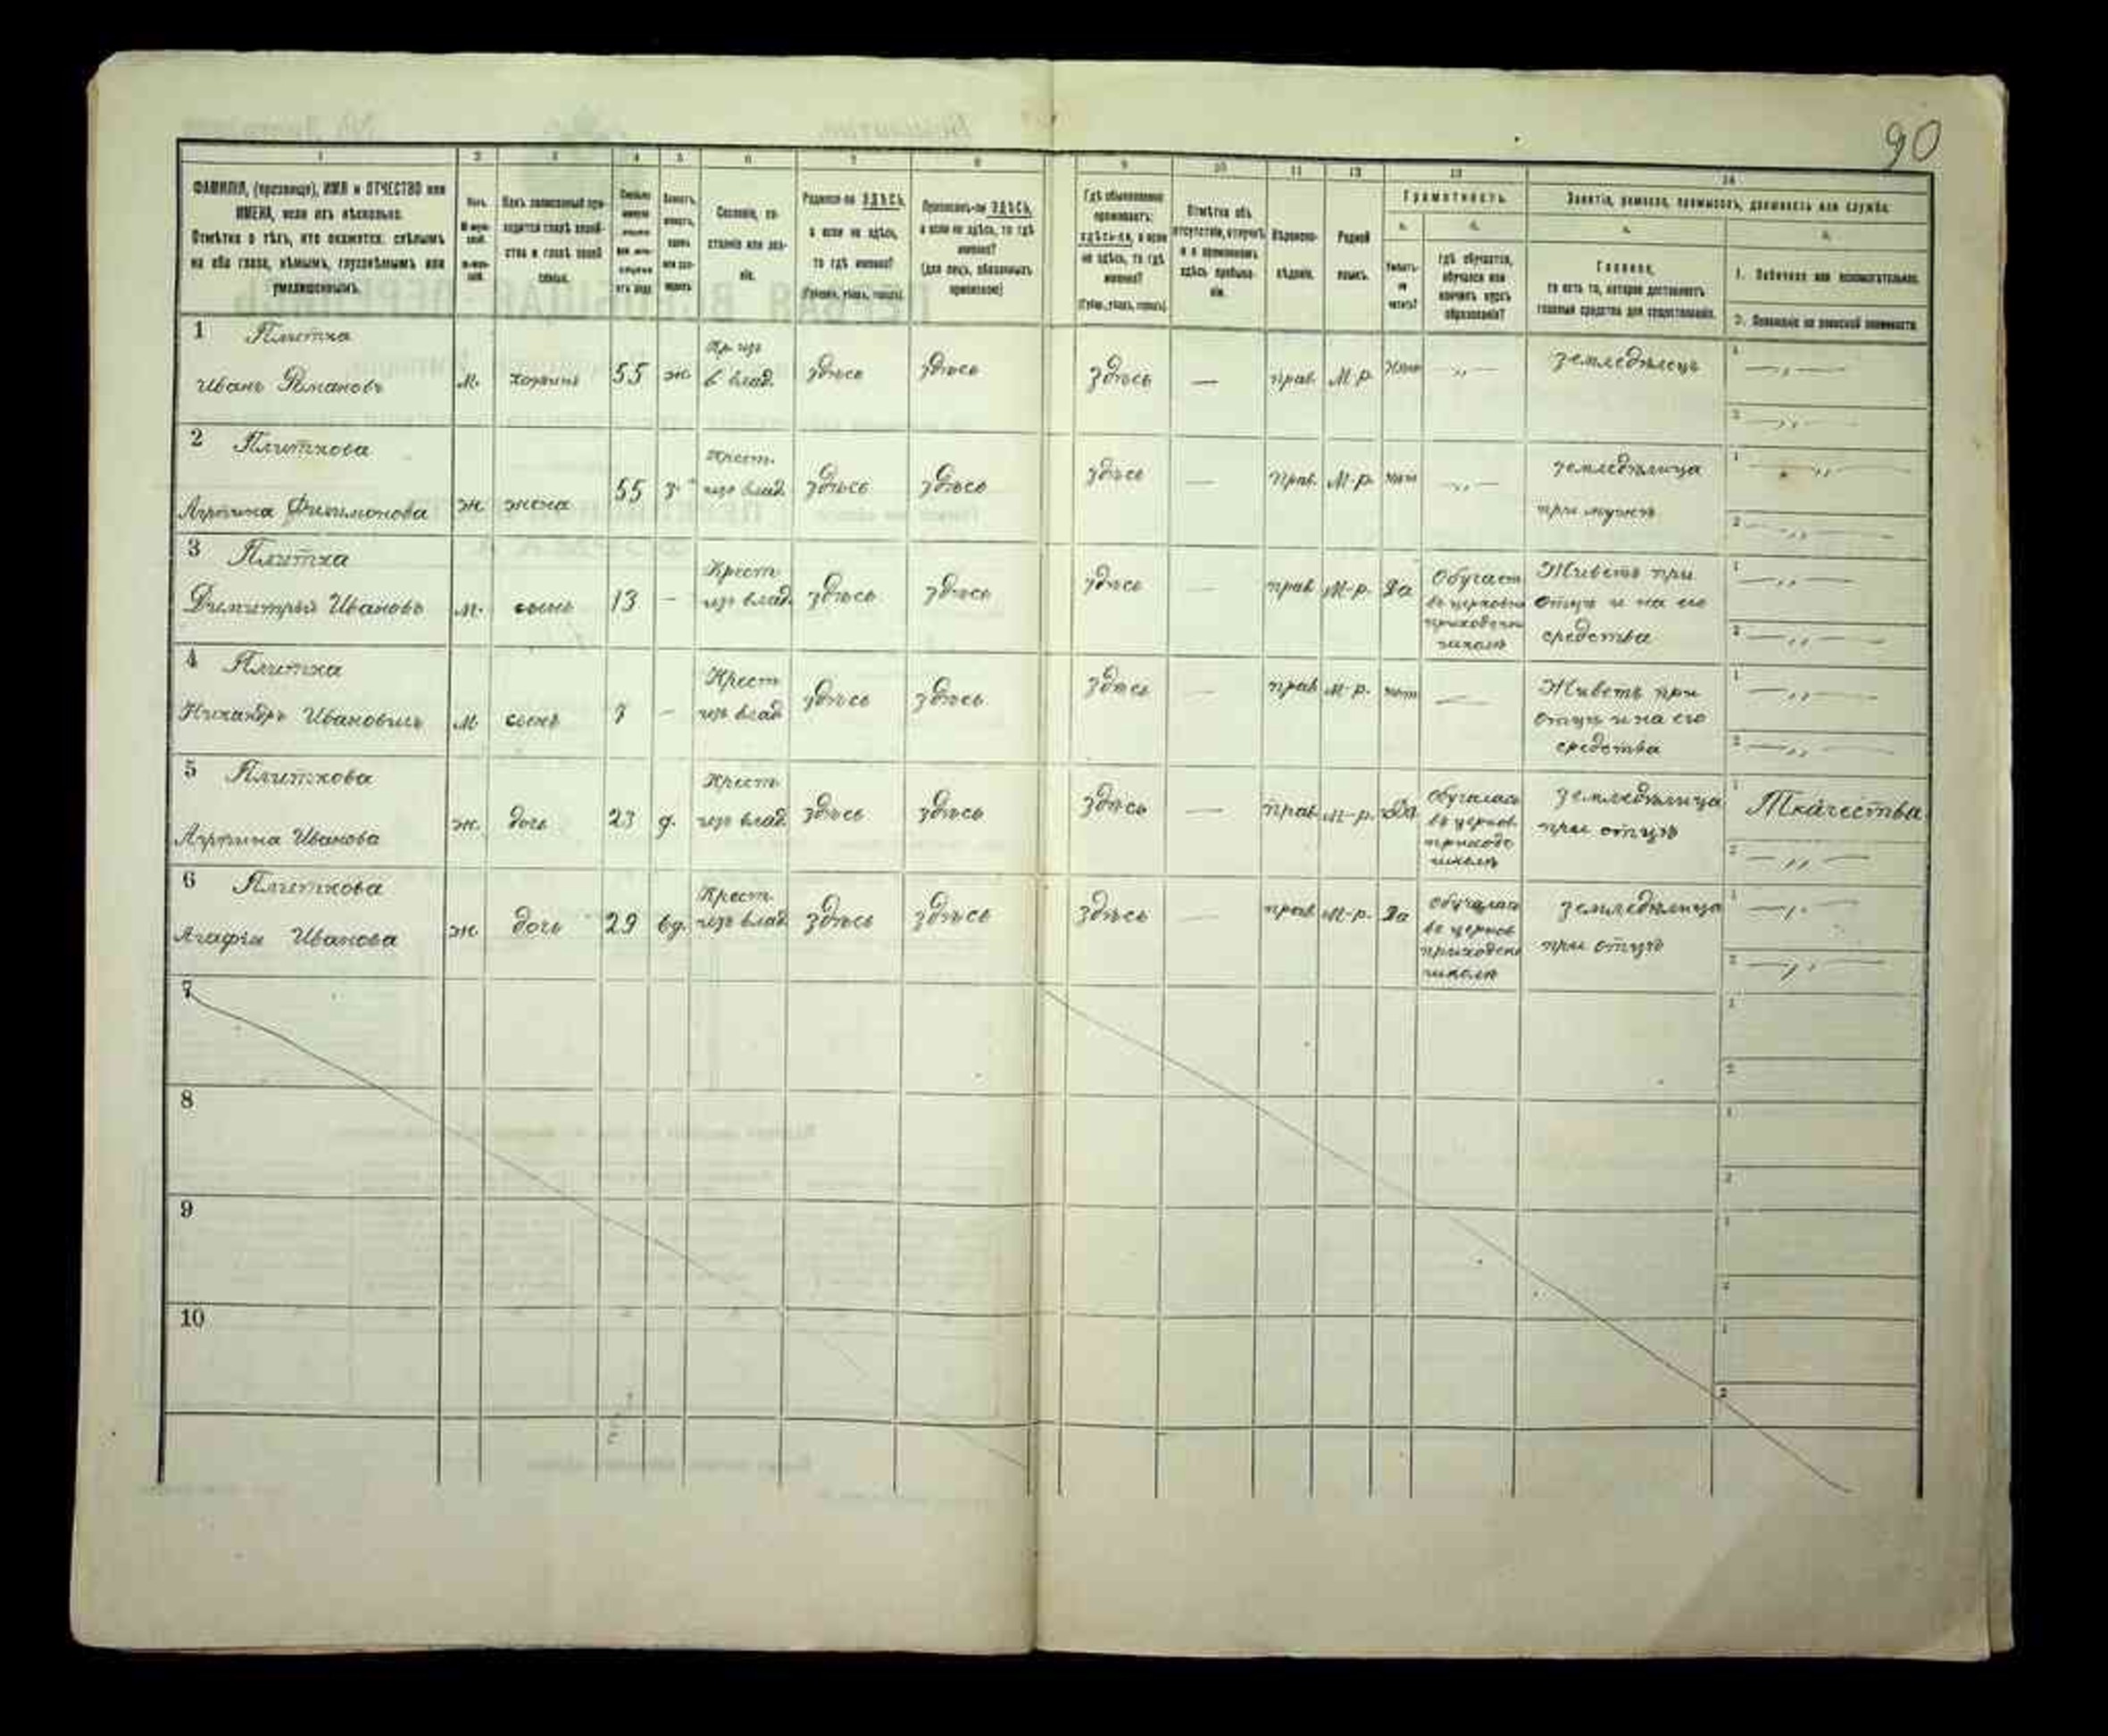 90
1 2 3 4 5 6 7 8 9 10 11 12 13 14
ФАМИЛІЯ, (прозвище), ИМЯ и ОТЧЕСТВО или
ИМЕНА, если ихъ нѣсколько.
Отмѣтка о тѣхъ, кто окажется: слѣпымъ
на оба глаза, нѣмымъ, глухонѣмымъ или
умалишеннымъ.
Сословіе, со-
стояніе или зва-
ніе.
Родился-ли ЗДѢСЬ,
а если не здѣсь,
то гдѣ именно?
(Губернія, уѣздъ, городъ).
Приписанъ-ли ЗДѢСЬ,
а если не здѣсь, то гдѣ
именно?
(для лицъ, обязанныхъ
припискою)
Гдѣ обыкновенно
проживаетъ:
здѣсь-ли, а если
не здѣсь, то гдѣ
именно?
(Губер., уѣздъ, городъ).
Отмѣтка объ
отсутствіи, отлучкѣ
и о временномъ
здѣсь пребыва-
ніи.
Вѣроиспо-
вѣданіе.
Родной
языкъ.
Грамотность.
а. б.
Умѣетъ-
ли
читать?
гдѣ обучается,
обучался или
кончилъ курсъ
образованія?
Занятіе, ремесло, промыселъ, должность или служба.
а. б.
Главное,
то есть то, которое доставляетъ
главныя средства для существованія.
1. Побочное или вспомогательное.
2. Положеніе по воинской повинности.
1 Плитка
Иванъ Романовъ
М. хозяинъ 55 ж. Кр. изъ
б влад. здѣсь здѣсь здѣсь — прав. М-р. земледѣлецъ
2 Плиткова
Агрипина Филимонова
ж. жена 55 з. Крест.
изъ влад. здѣсь здѣсь здѣсь — прав. М-р. нѣтъ земледѣлица
при мужѣ
3 Плитка
Димитрій Ивановъ
М. сынъ 13 — Крест
изъ влад. здѣсь здѣсь здѣсь — прав М-р. Да Обучает
въ церковно
приходской
школѣ
Живетъ при
отцѣ и на его
средства
4 Плитка
Никандръ Ивановичъ
М сынъ — Крест
изъ влад здѣсь здѣсь здѣсь — прав М-р. нѣтъ —
Живетъ при
отцѣ и на его
средства
5 Плиткова
Агрипина Иванова
ж. дочь 23 д. Крест
изъ влад здѣсь здѣсь здѣсь — прав. М-р. Да обучалась
въ церков
приходс
школѣ
земледѣлица
при отцѣ
Ткачества
6 Плиткова
Агафія Иванова
ж. дочь 29 вд. Крест.
изъ влад. здѣсь здѣсь здѣсь — прав М-р. Да обучалась
въ церков
приходско
школѣ
земледѣлица
при отцѣ
7
8
9
10